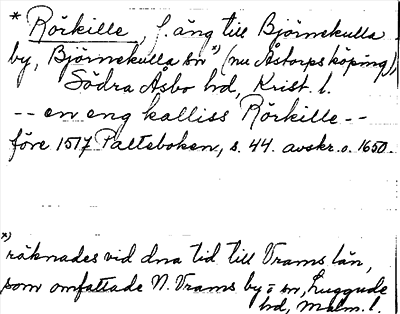 * Rörkille, f. äng till Björnekulla
by, Björnekulla sn *) (nu Åstorps köping),
Södra Åsbo hd, Krist. l.
-- en eng kalliss Rörkille --
före 1517 Palteboken, s. 44. avskr. o. 1650.
*)
räknades vid dna tid till Vrams län,
som omfattade N. Vrams by o sn, Luggude
hd, Malm. l.